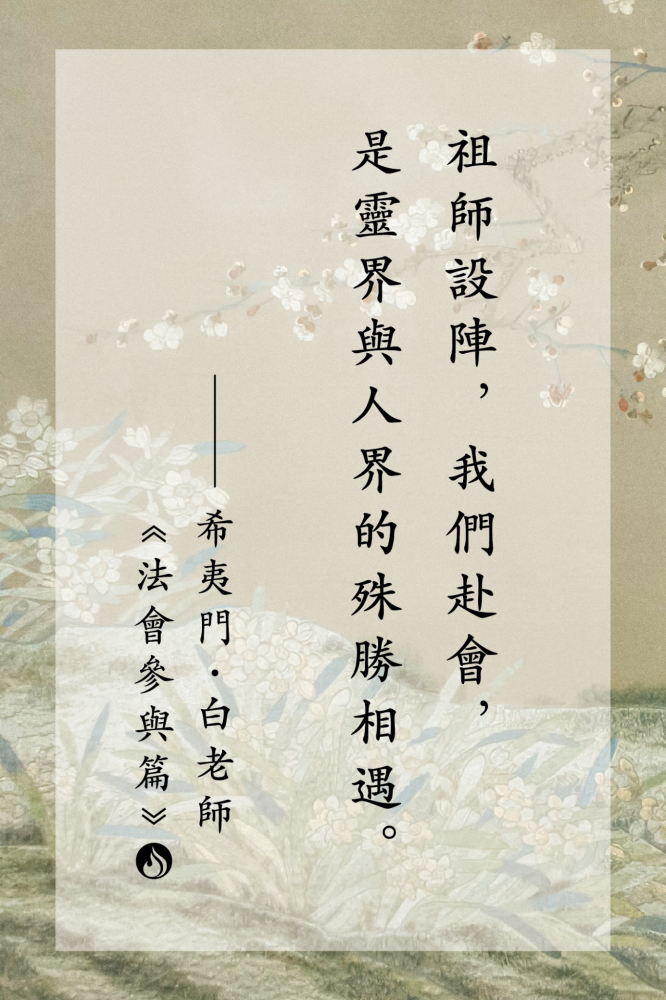 祖師設陣，我們赴會，
是靈界與人界的殊勝相遇。
——希夷門·白老師
《法會參與篇》